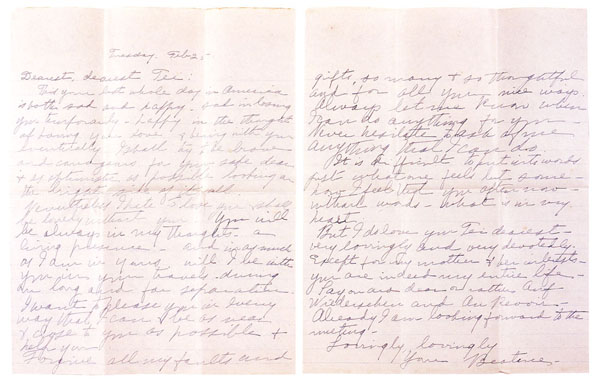 Tuesday, Feb 25
Dearest, dearest Tei:
your last whole day in America
is both sad and happy - sad in losing
you temporarily - happy in the thought
of being with you
eventually. I shall try to be brave
and courageous for your sake, dear
& as optimistic as possible looking on
the bright side of it all
Nevertheless I hate to
be lonely without you. You will
be always in my thoughts - a
living presence - and in as much
as I am in yours will I be with
you in your travels, during
our long and far separation.
I want to please you in every
way that I can & be as near
& close to you as possible &
help you
Forgive all my faults and
gifts, so many & so thoughtful
and for all your nice ways.
Always let me know when
I can do anything for you -
Never hesitate to ask of me
anything that I can do
It is difficult to put into words
just what one feels but some-
how I feel that you often know -
without words - what is in my
heart.
But I do love you Tei dearest -
very lovingly and very devotedly.
Except for my mother & her interests
you are indeed my entire life.
Auf
Wiedersehen and Au Revoir -
Already I am looking forward to the
meeting -
Lovingly, lovingly
Your Beatrice.